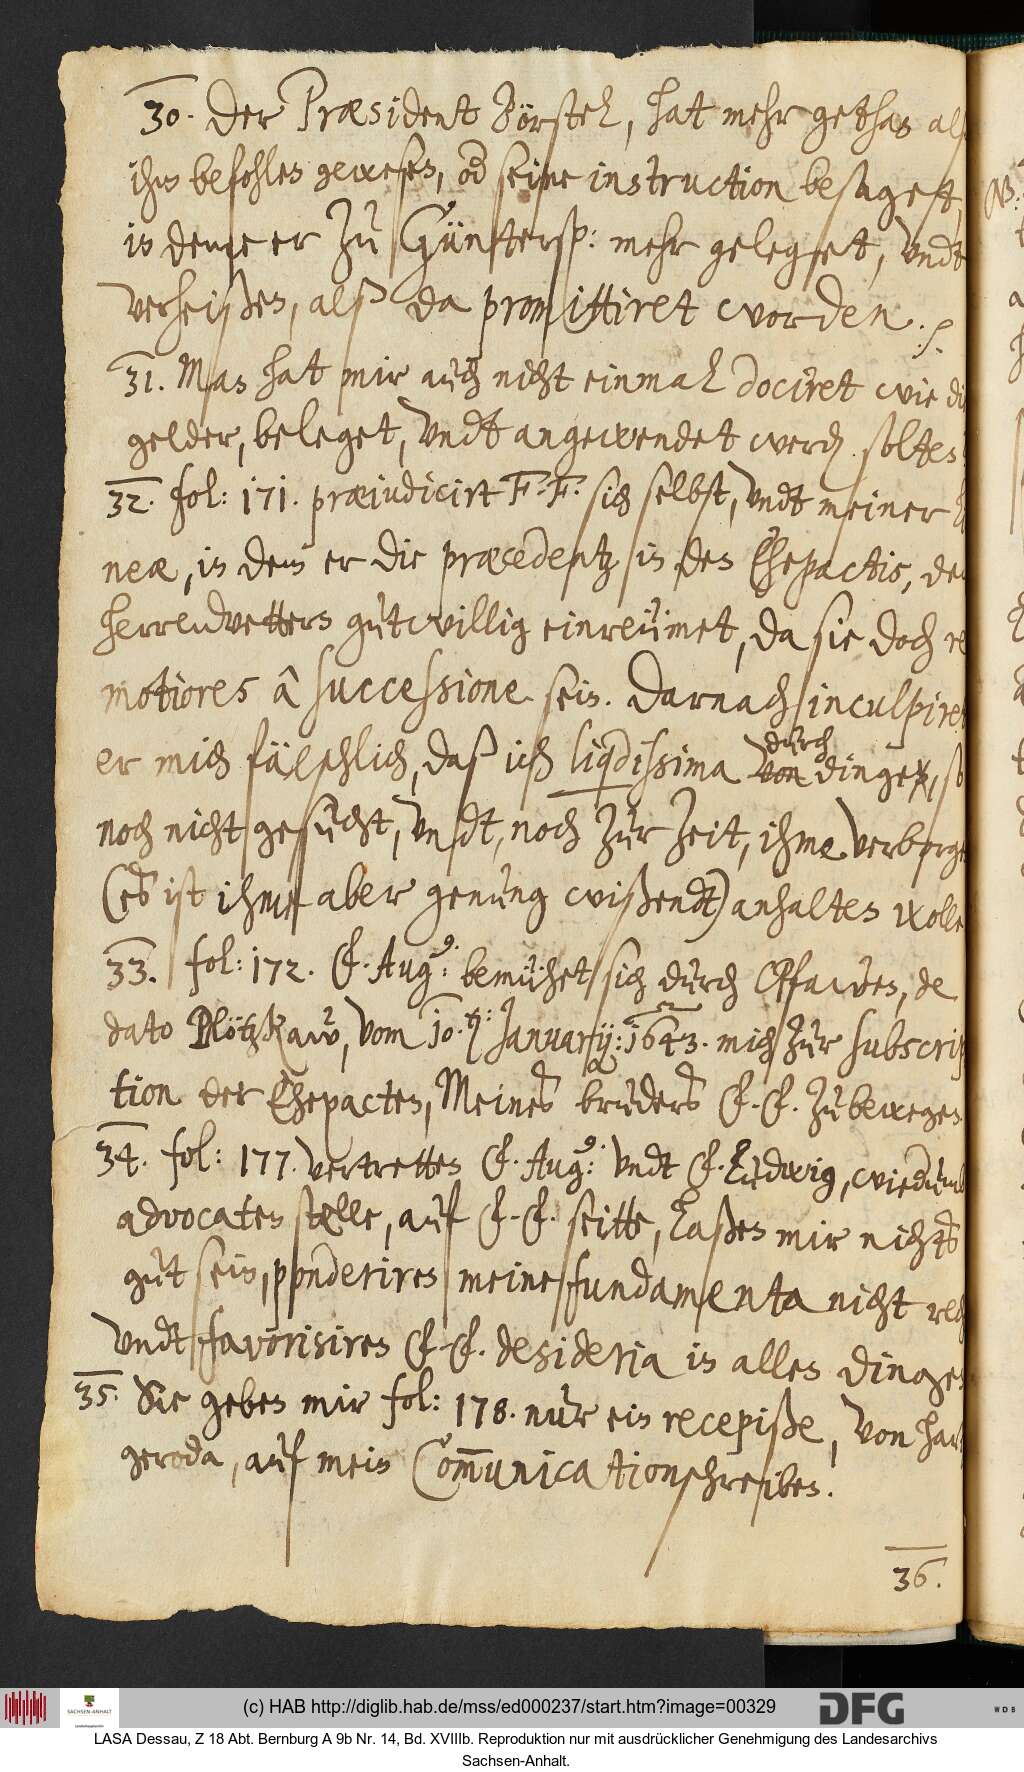 30. Der Præsident Börstel, hat mehr gethan alß
ihm befohlen gewesen, od seine instruction besaget,
in deme er zu Günttersp: mehr geleget, undt
verheißen, alß da promittiret worden. /.
31. Man hat mir auch nicht einmal dociret wie die
gelder, beleget, undt angewendet werd. solten.
32. fol: 171. præjudicirt F. F. sich selbst, undt meiner
neæ, in dem er die præcedentz in den Ehepactis, den
herrenvettern gutwillig einreümet, da sie doch re
motiores â successione sein. Darnach inculpiret
er mich fälschlich, daß ich liqdissima durch
von dingen, so
noch nicht gesucht, undt, noch zur zeit, ihme verborgen
(es ist ihme aber genung wißendt) anhalten wolle
33. fol: 172. F. Aug9: bemühet sich durch Pfawen, de
dato Plötzkaw, vom 10. Januarij: 1643. mich zur subscrip
tion der Ehepacten, Meines bruders F. F. zu bewegen.
34. fol: 177. vertretten F. Aug9: undt F. Ludwig, wiederumb
advocaten stelle, auf F. F. seitte, laßen mir nichts
gut sein, ponderiren meine fundamenta nicht rech
undt favorisiren F. F. desideria in allen dingen
35. Sie geben mir fol: 178. nur ein recepiße, von Hartz
geroda, auf mein Com̄unicationschreiben.
36.
(c) HAB http://diglib.hab.de/mss/ed000237/start.htm?image=00329
SACHSEN-ANHALT
DFG
WDB
LASA Dessau, Z 18 Abt. Bernburg A 9b Nr. 14, Bd. XVIIIb. Reproduktion nur mit ausdrücklicher Genehmigung des Landesarchivs
Sachsen-Anhalt.